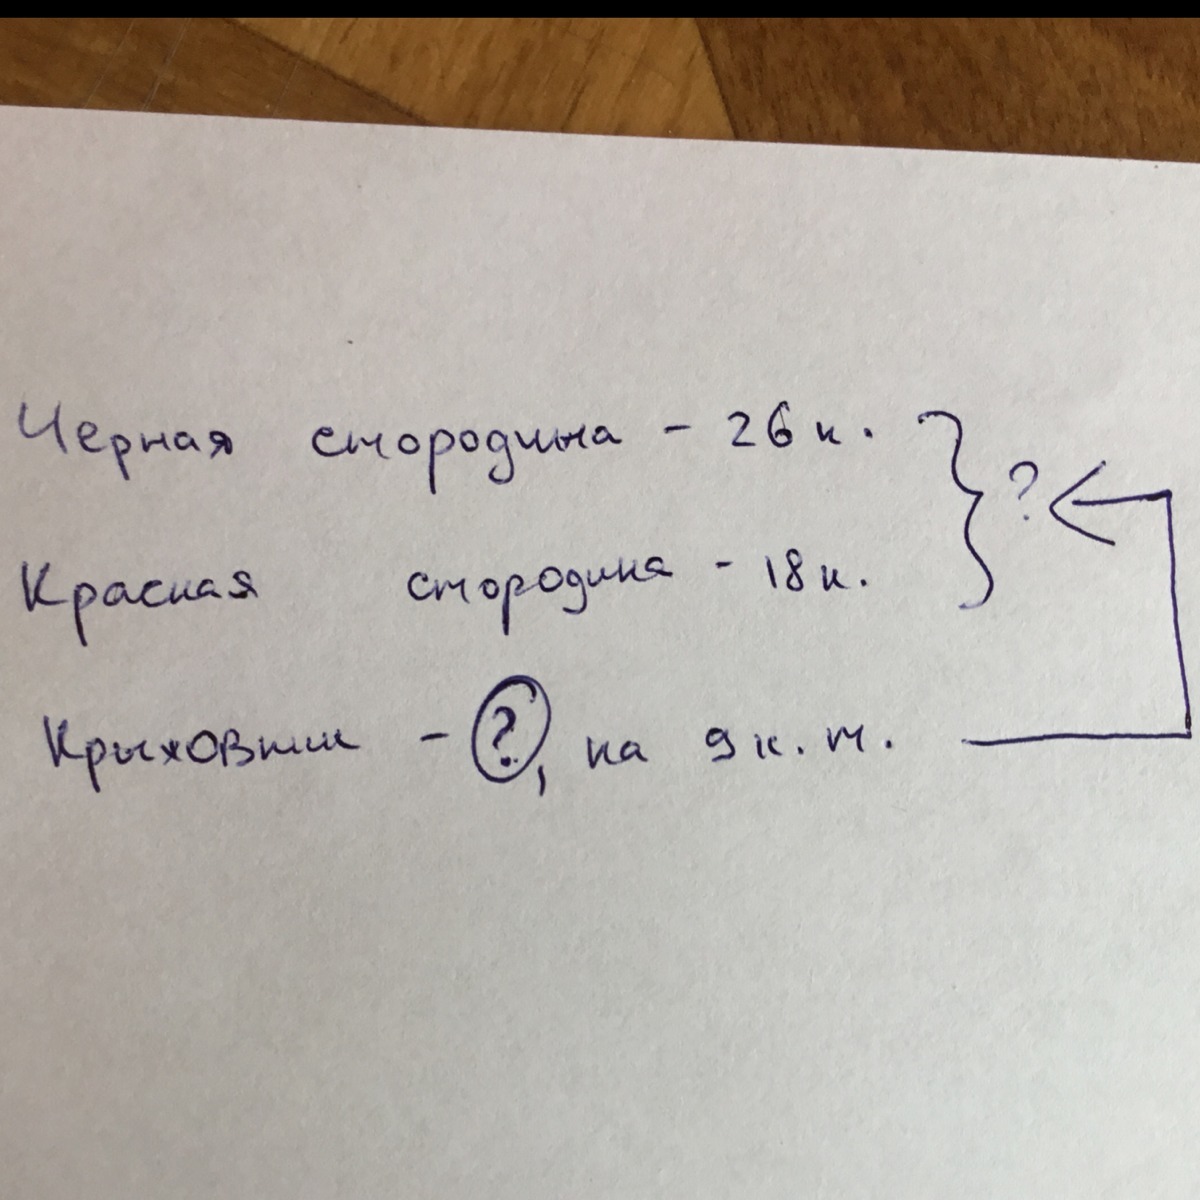 Черная смородина - 26 к. } ?
Красная смородина - 18 к.
Крыжовник - ?, на 9 к. м.